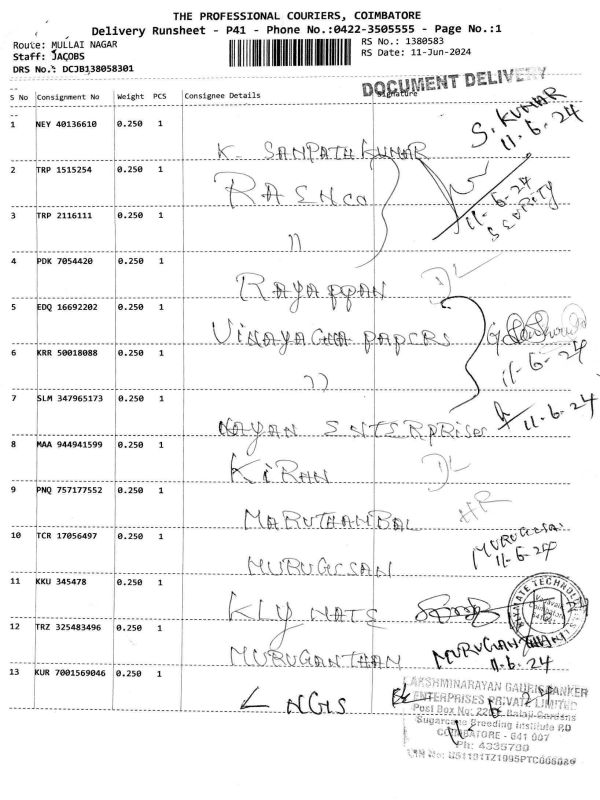 THE PROFESSIONAL COURIERS, COIMBATORE
Delivery Runsheet - P41 - Phone No.:0422-3505555 - Page No.:1
Route: MULLAI NAGAR
RS No.: 1380583
Staff: JACOBS
RS Date: 11-Jun-2024
DRS No.: DCJB138058301
DOCUMENT DELIVERY
S No Consignment No Weight PCS Consignee Details Signature
1 NEY 40136610 0.250 1
K. SAMPATH KUMAR S. KUMAR 11-6-24
2 TRP 1515254 0.250 1
11-6-24
3 TRP 2116111 0.250 1
"
4 PDK 7054420 0.250 1
RAYAPPAN DL
5 EDQ 16692202 0.250 1
VINAYAGHA PAPERS
6 KRR 50018088 0.250 1
" 11-6-24
7 SLM 347965173 0.250 1
NAYAN ENTERPRISES 11-6-24
8 MAA 944941599 0.250 1
KIRAN DL
9 PNQ 757177552 0.250 1
MARUTHAMBAL HR
10 TCR 17056497 0.250 1
MURUGESAN MURUGESAN 11-6-24
11 KKU 345478 0.250 1
12 TRZ 325483496 0.250 1
MURUGANTHAM MURUGANTHAM 11-6-24
13 KUR 7001569046 0.250 1
LAKSHMINARAYAN
ENTERPRISES PRIVATE LIMITED
Post Box No: Balaji Gardens
Sugarcane Breeding Institute PO
COIMBATORE - 641 007